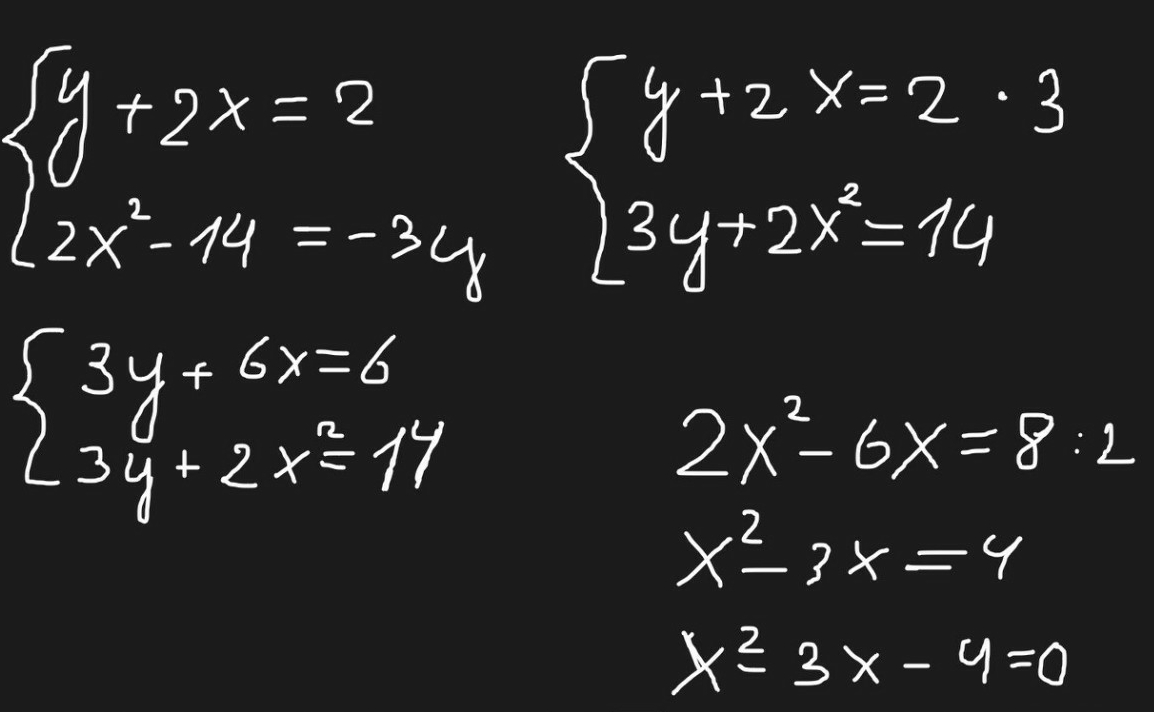 y + 2x = 2
2x² - 14 = -3y
y + 2x = 2 · 3
3y + 2x² = 14
3y + 6x = 6
3y + 2x² = 14
2x² - 6x = 8 : 2
x² - 3x = 4
x² - 3x - 4 = 0